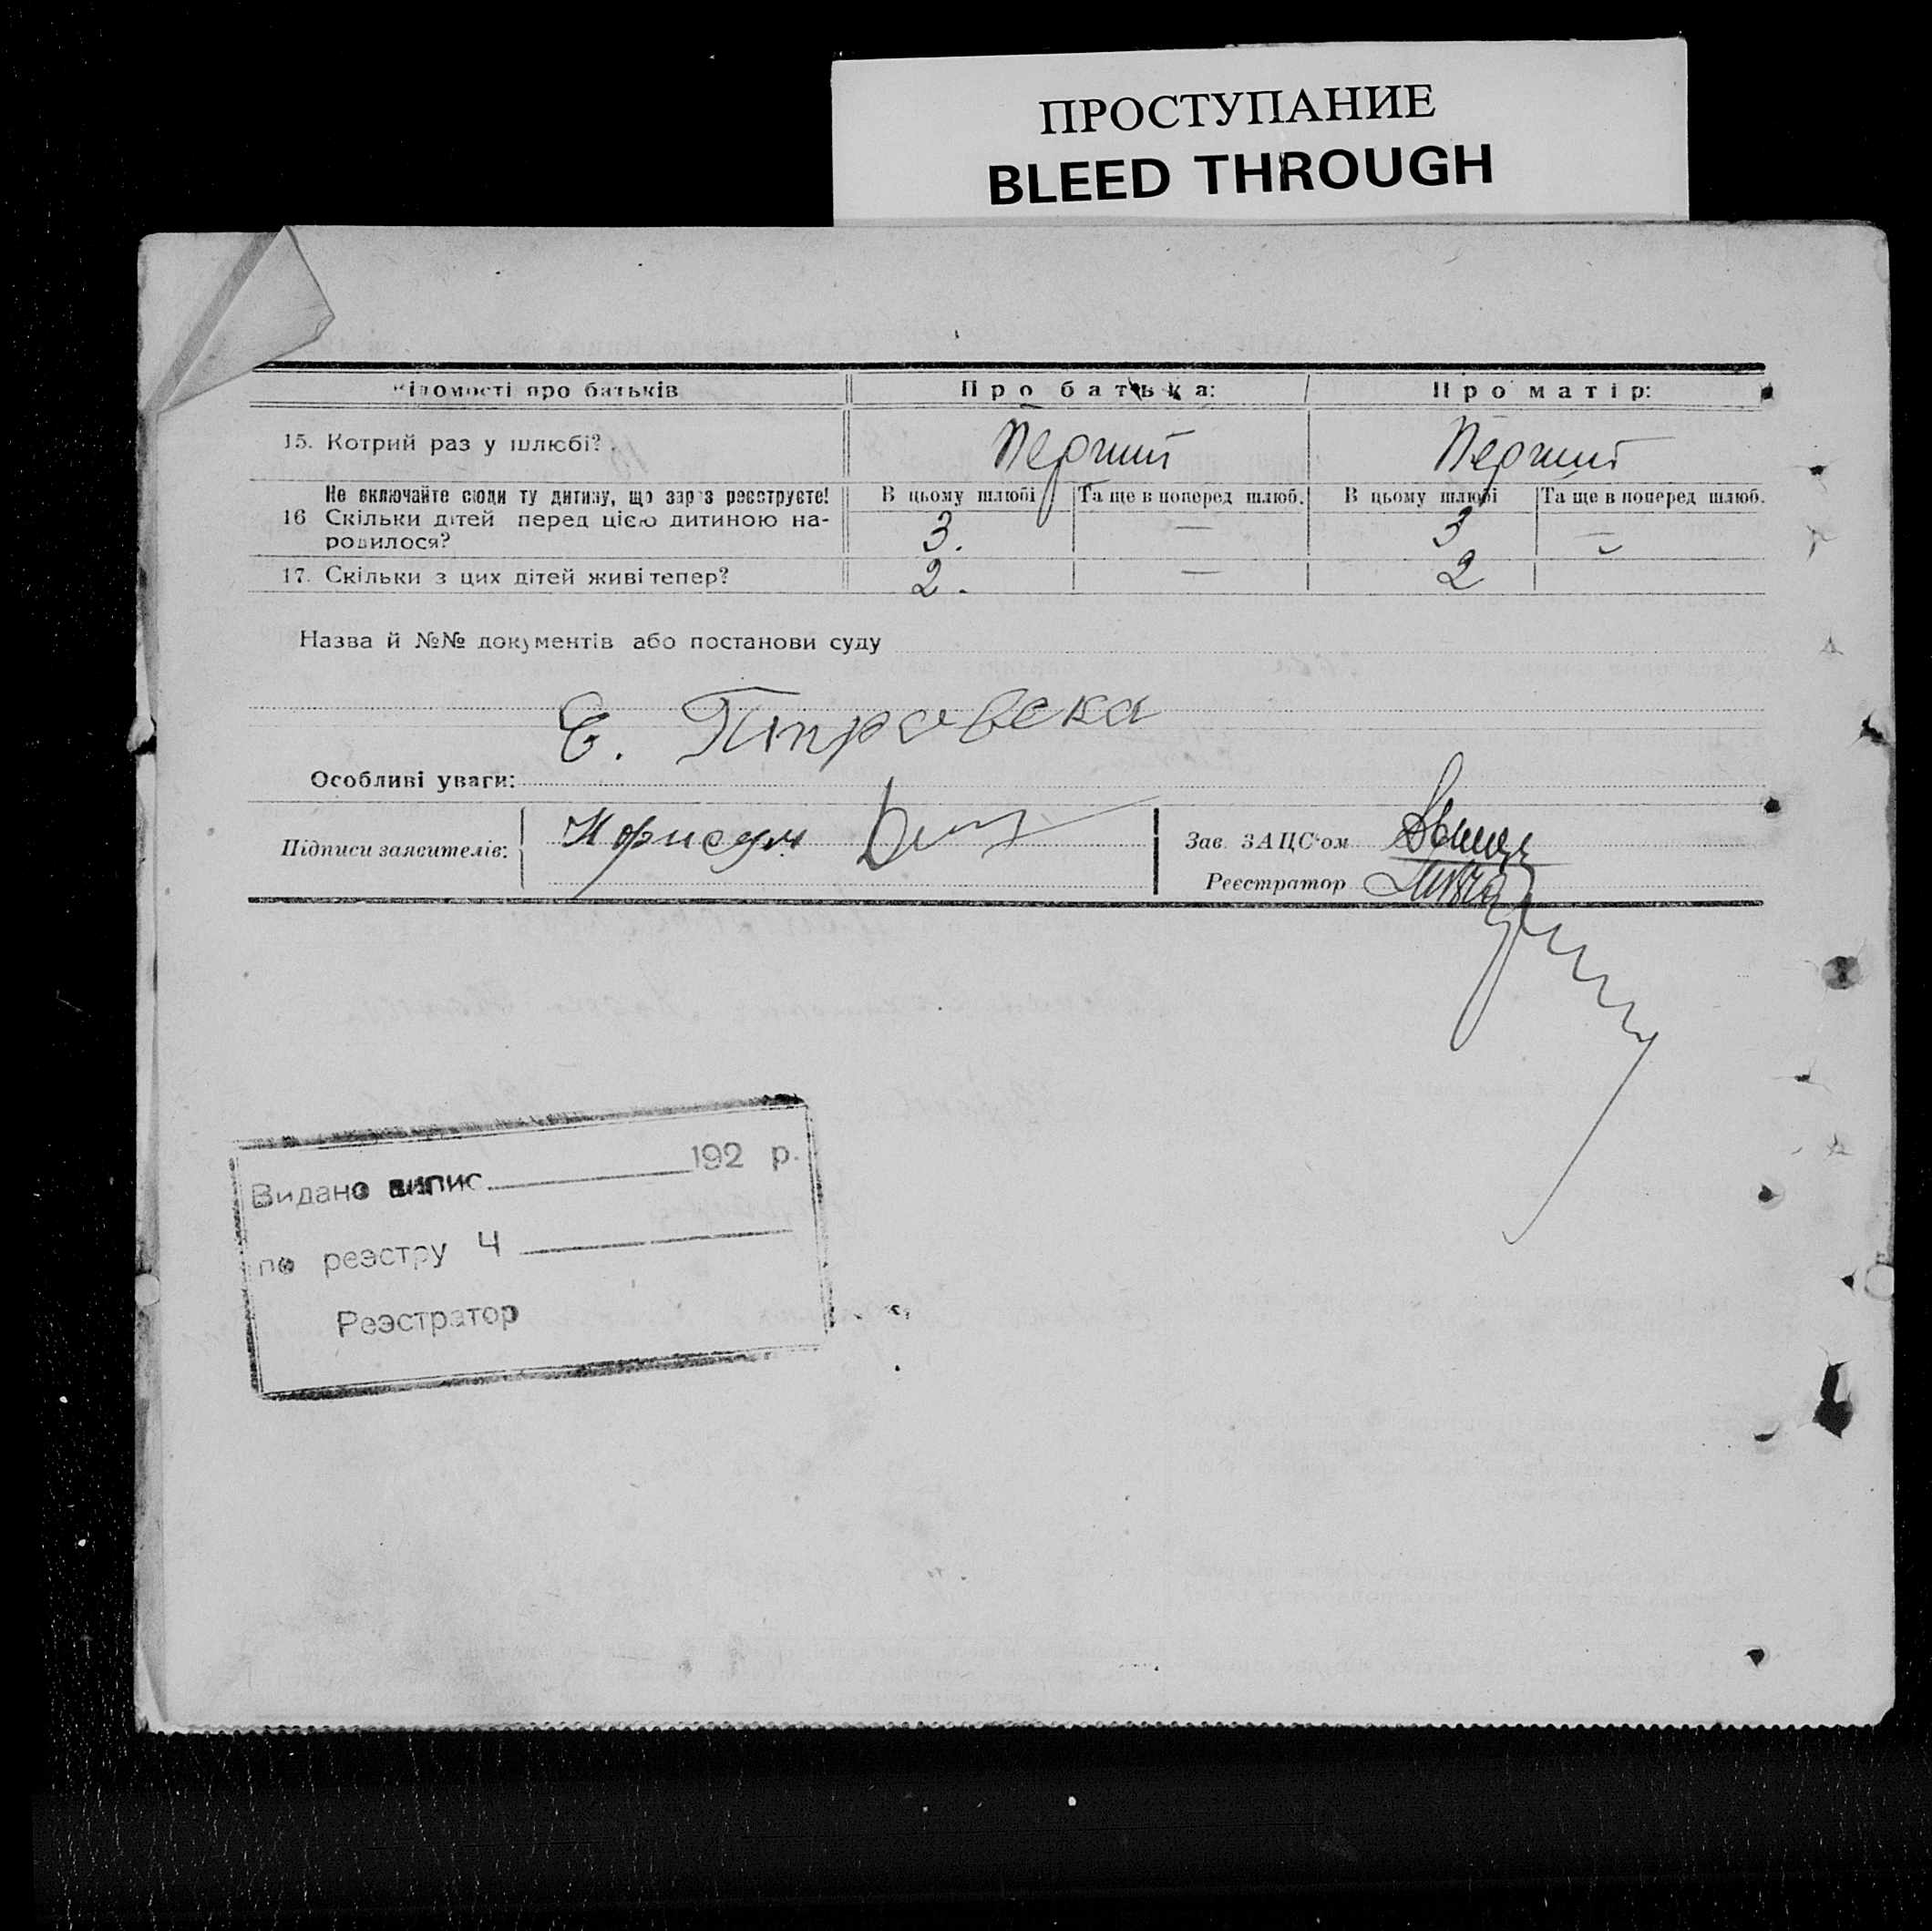 ПРОСТУПАНИЕ
BLEED THROUGH
Відомості про батьків Про батька: Про матір:
15. Котрий раз у шлюбі? Перший Перший
Не включайте сюди ту дитину, що зараз реєструєте! В цьому шлюбі Та ще в поперед шлюб. В цьому шлюбі Та ще в поперед шлюб.
16 Скільки дітей перед цією дитиною на-
родилося? 3. — 3 —
17. Скільки з цих дітей живі тепер? 2. — 2
Назва й №№ документів або постанови суду
Є.
Особливі уваги:
Підписи заявителів:
Зав. ЗАЦС'ом
Реєстратор
Видано випис 192 р.
по реэстру Ч
Реэстратор